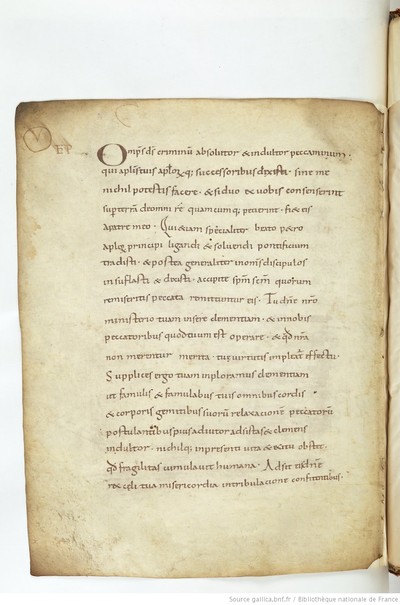 Omps ds criminũ absolutor & indultor peccaminum·
qui aplis tuis aplorũq; successoribus dixisti· sine me
nichil potestis facere· & si duo ex vobis consenserint
sup terrã de omni re quamcumq; petierint· fi& eis
a patre meo· Qui etiam specialiter beato petro
aplorũ principi ligandi & solvendi pontificium
tradisti· & postea generaliter in omnes discipulos
insufflasti & dixisti· accipite spm scm quorum
remiseritis peccata remittuntur eis· Tu dne nro
ministerio tuam insere clementiam· & in nobis
peccatoribus quod tuum est operare· & qd nra
non merentur merita· tuę virtutis impleat effectu·
Supplices ergo tuam inploramus clementiam
ut famulis & famulabus tuis omnibus cordis
& corporis gemitibus suorũ relaxationẽ peccatorũ
postulantibus pius adiutor adsistas & clemens
indultor· nichilq; in presenti vita & exitu obsit·
qd fragilitas cumulavit humana· Adsit eis dne
rex cęli tua misericordia in tribulatione confitentibus·
Source gallica.bnf.fr / Bibliothèque nationale de France